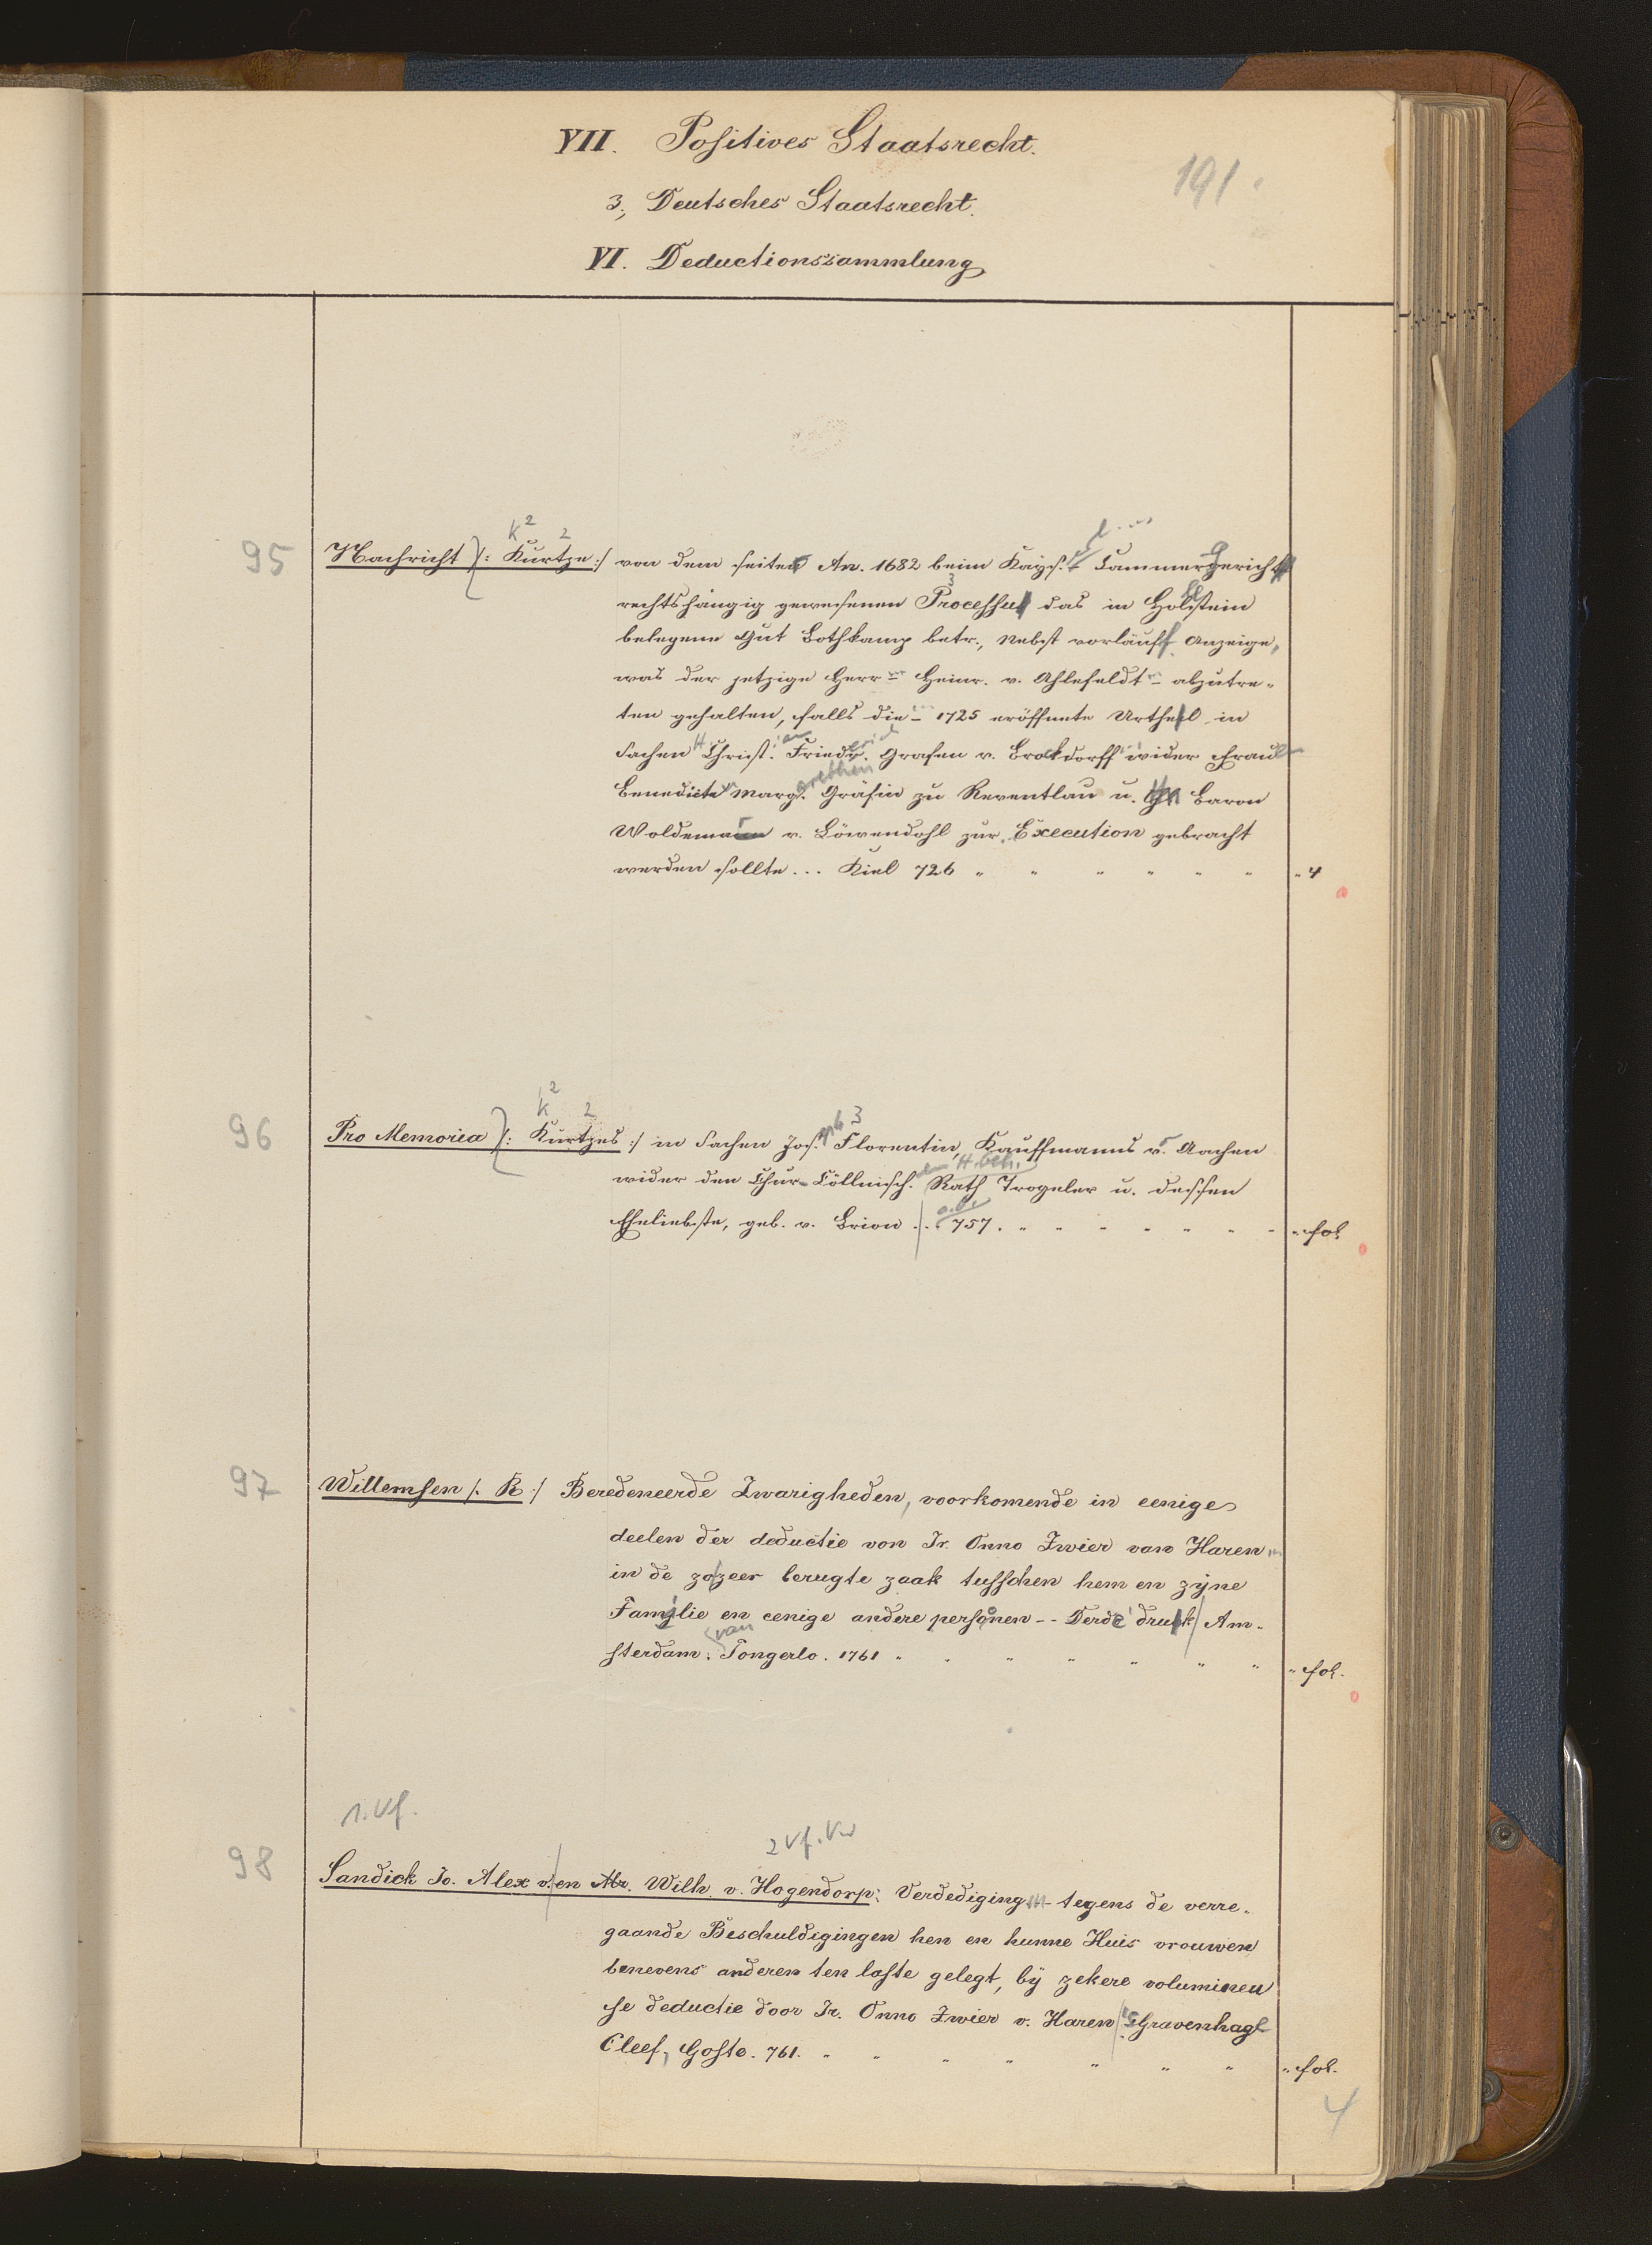 VII. Positives Staatsrecht.
191.
3., Deutsches Staatsrecht.
VI. Deductionssammlung
K² 2
95 Nachricht /: Kurtze :/ von dem seiter An. 1682 beim Kays. Cammergericht
rechtshängig gewesenen Processu das in Holstein
belegene Gut Bothkamp betr., Nebst vorläuff. Anzeige,
was der jetzige Herr Heinr. v. Ahlefeldt abzutre-
ten gehalten, falls die 1725 eröffnete Urtheil in
Sachen Christ. Friedr. Grafen v. Brockdorff wider Frau
Benedicte Marg. Gräfin zu Reventlau u. Baron
Woldemar v. Löwendohl zur Execution gebracht
werden sollte... Kiel 726 " " " " " " " 4
K² 2 3
96 Pro Memoria /: Kurtzes :/ in Sachen Jos. Florentin, Kauffmanns v. Aachen
wider den Chur-Cöllnisch. Rath Trogeler u. dessen
Eheliebste, geb. v. Brion .. 757. " " " " " " " fol
o. O.
97 Willemsen /. R :/ Beredeneerde Zwarigheden, voorkomende in eenige
deelen der deductie von Jr. Onno Zwier van Haren
in de zo zeer berugte zaak tusschen hem en zijne
Familie en eenige andere personen -- Derde druk Am-
van
sterdam. Tongerlo. 1761 " " " " " " " " fol.
1. Vf.
2 Vf.
98 Sandick Jo. Alex v. en Mr. Wilh v. Hogendorp: Verdediging - tegens de verre-
gaande Beschuldigingen hen en hunne Huis vrouwen
benevens anderen ten laste gelegt, bij zekere volumineu
se deductie door Jr. Onno Zwier v. Haren 's Gravenhage
Cleef, Goste. 761. " " " " " " " " fol.
4